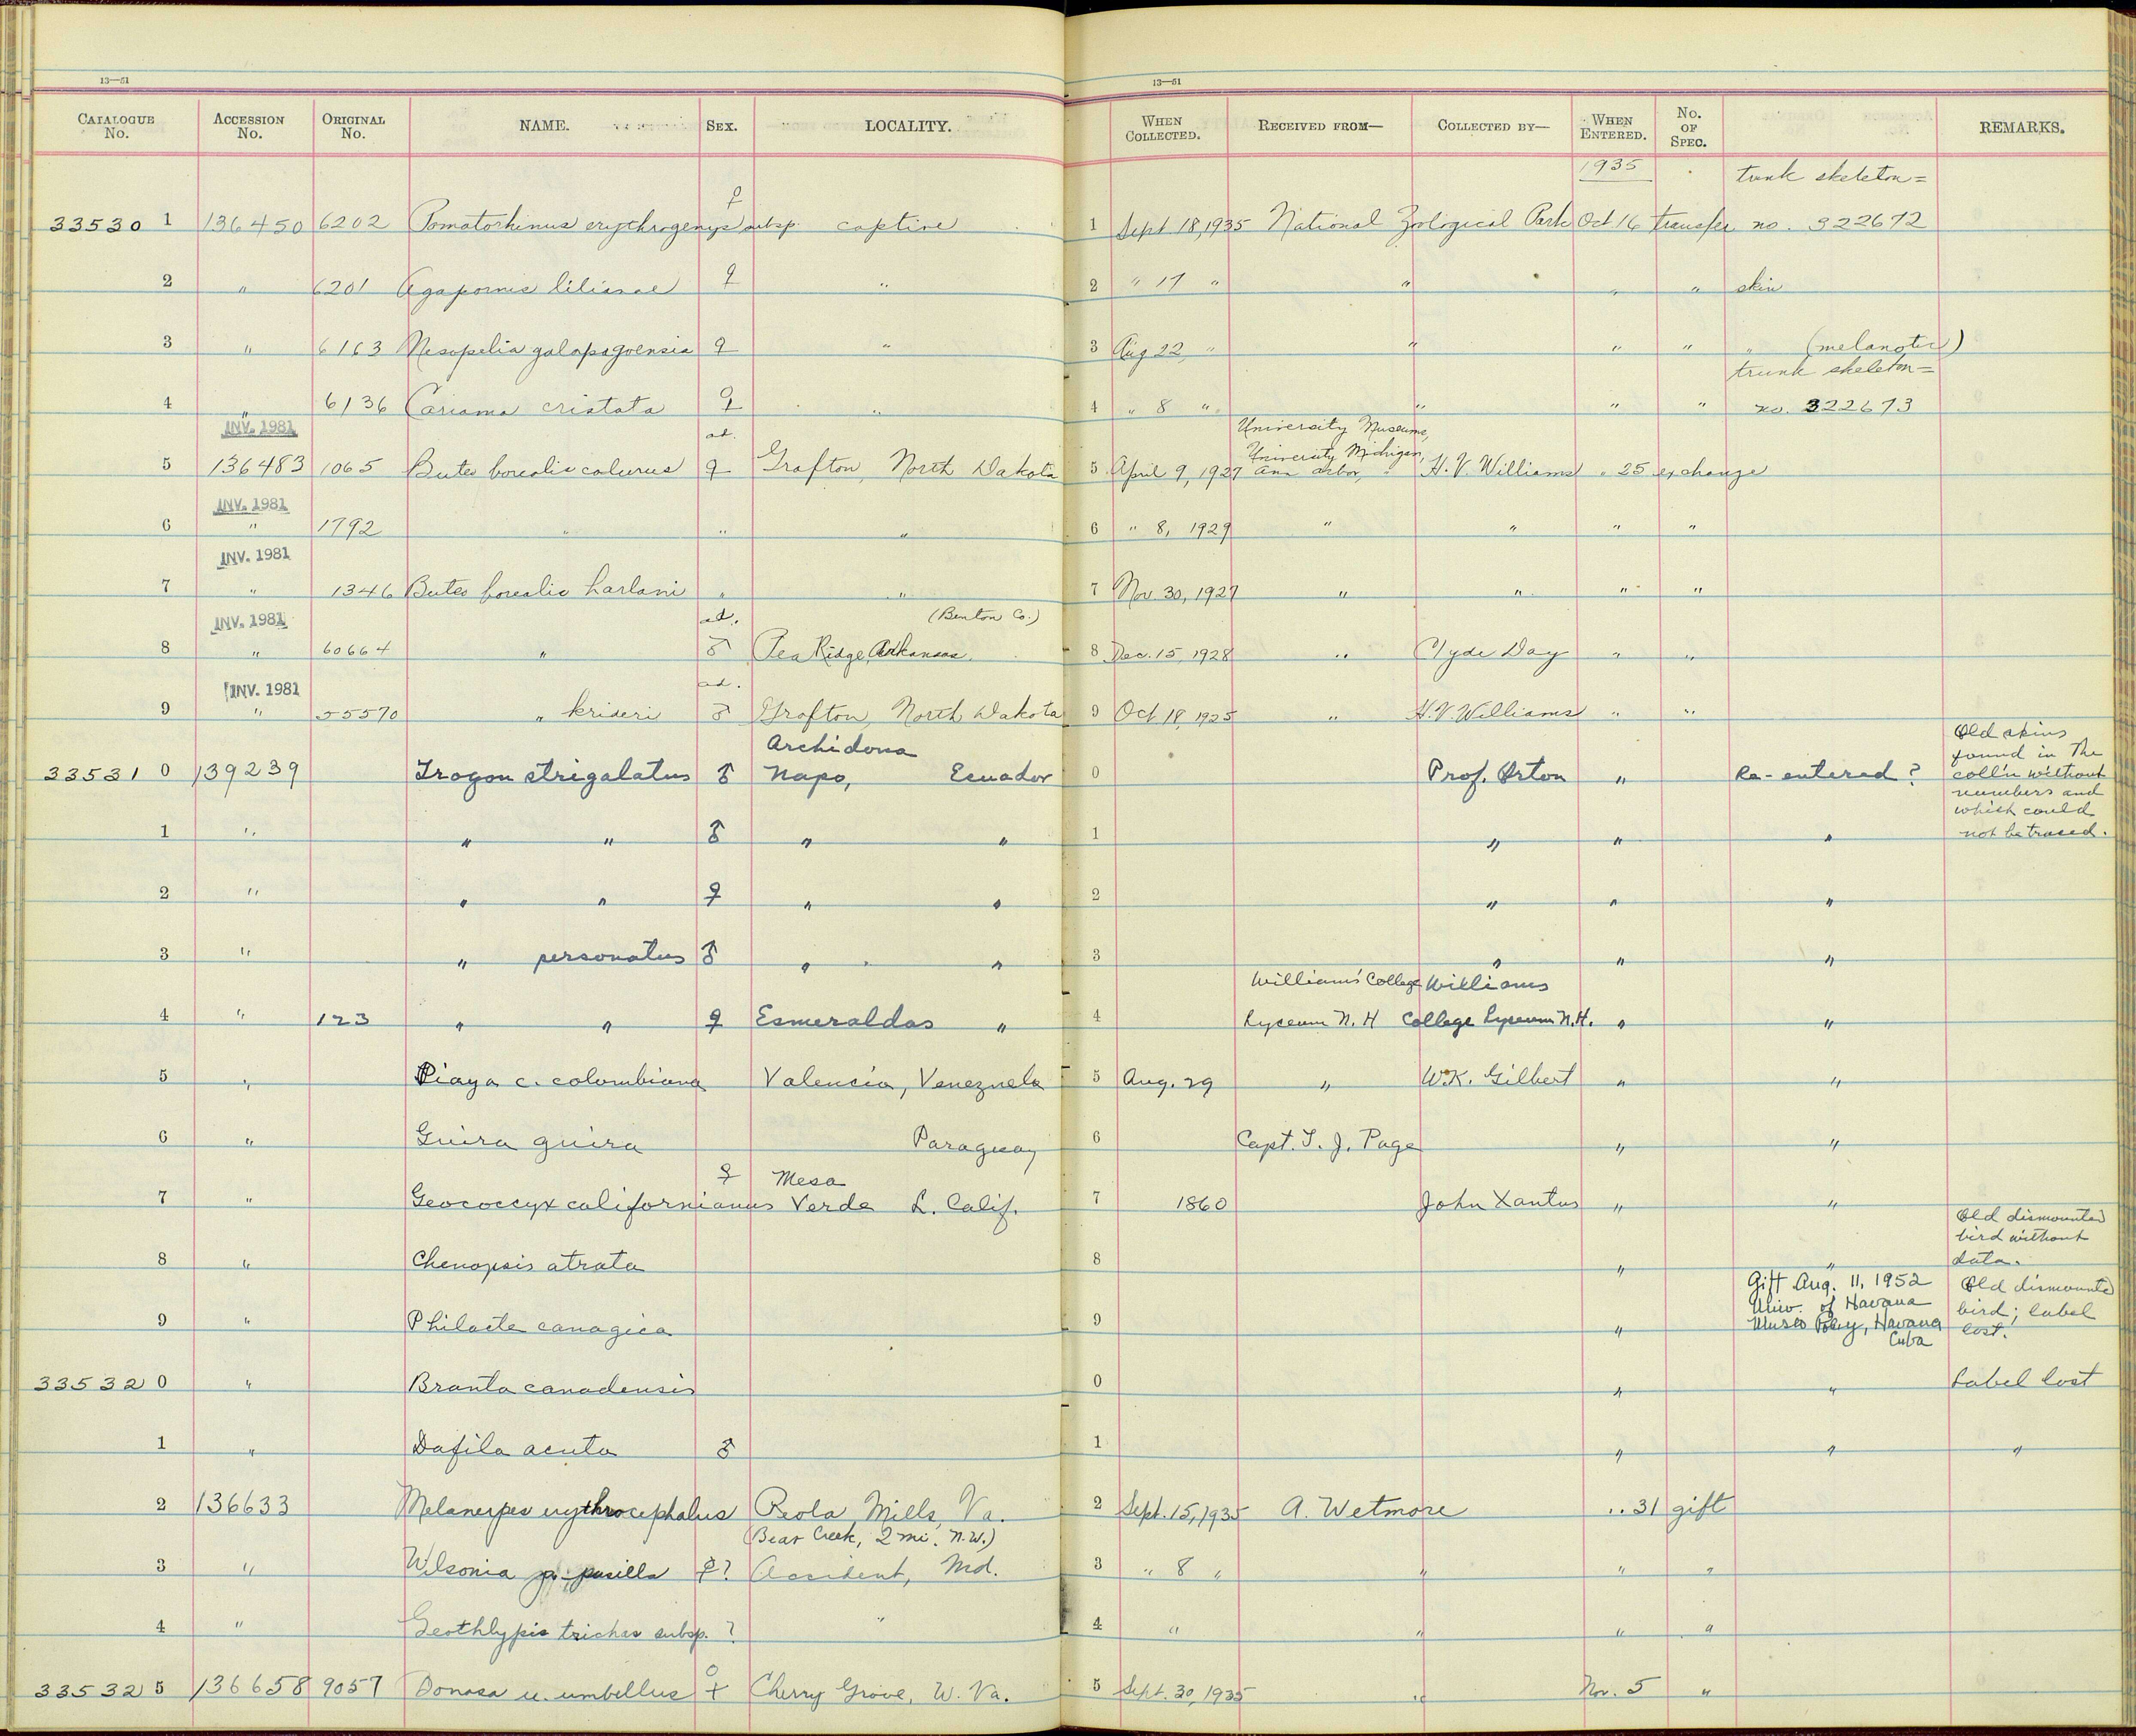 13—51 13—51
CATALOGUE No. ACCESSION No. ORIGINAL No. NAME. SEX. LOCALITY. WHEN COLLECTED. RECEIVED FROM— COLLECTED BY— WHEN ENTERED. No. OF SPEC. REMARKS.
1935 trunk skeleton=
33530 1 136450 6202 Pomatorhinus erythrogenys subsp. ♀ captive 1 Sept 18, 1935 National Zoological Park Oct 16 transfer no. 322672
2 " 6201 Agapornis lilianae ♀ " 2 " 17 " " " " skin
3 " 6163 Nesopelia galapagoensis ♀ " 3 Aug 22, " " " " " (melanotic)
trunk skeleton=
4 " 6136 Cariama cristata ♀ " 4 " 8 " " " " no. 322673
INV. 1981 ad. University Museums,
University Michigan,
5 136483 1065 Buteo borealis calurus ♀ Grafton, North Dakota 5 April 9, 1927 Ann Arbor, H. V. Williams " 25 exchange
INV. 1981
6 " 1792 " " " 6 " 8, 1929 " " " "
INV. 1981
7 " 1346 Buteo borealis harlani " " 7 Nov. 30, 1927 " " " "
INV. 1981 ad. (Benton Co.)
8 " 60664 " ♂ Pea Ridge, Arkansas 8 Dec. 15, 1928 " Clyde Day " "
INV. 1981 ad.
9 " 55570 " krideri ♂ Grafton, North Dakota 9 Oct 18, 1925 " H. V. Williams " "
Archidona Old skins
found in the
33531 0 139239 Trogon strigalatus ♂ Napo, Ecuador 0 Prof. Orton " Re-entered? coll'n without
numbers and
which could
1 " " " ♂ " " 1 " " " not be traced.
2 " " " ♀ " " 2 " " "
3 " " personatus ♂ " " 3 " " "
Williams' College Williams
4 " 123 " " ♀ Esmeraldas " 4 Lyceum N. H College Lyceum N.H. " "
5 " Piaya c. colombiana Valencia, Venezuela 5 Aug. 29 " W.K. Gilbert " "
6 " Guira guira Paraguay 6 Capt. T. J. Page " "
♀ Mesa
7 " Geococcyx californianus Verde L. Calif. 7 1860 John Xantus " "
Old dismounted
bird without
8 " Chenopsis atrata 8 " " data.
Gift Aug. 11, 1952 Old dismounted
Univ. of Havana bird; label
9 " Philacte canagica 9 " Museo Poey, Havana lost.
Cuba
33532 0 " Branta canadensis 0 " " Label lost
1 " Dafila acuta ♂ 1 " " "
2 136633 Melanerpes erythrocephalus Peola Mills, Va. 2 Sept. 15, 1935 A. Wetmore " 31 gift
(Bear Creek, 2 mi. N.W.)
3 " Wilsonia p. pusilla ♀? Accident, Md. 3 " 8 " " " "
4 " Geothlypis trichas subsp. ? " 4 " " " "
33532 5 136658 9057 Bonasa u. umbellus ♀ Cherry Grove, W. Va. 5 Sept. 30, 1935 " Nov. 5 "